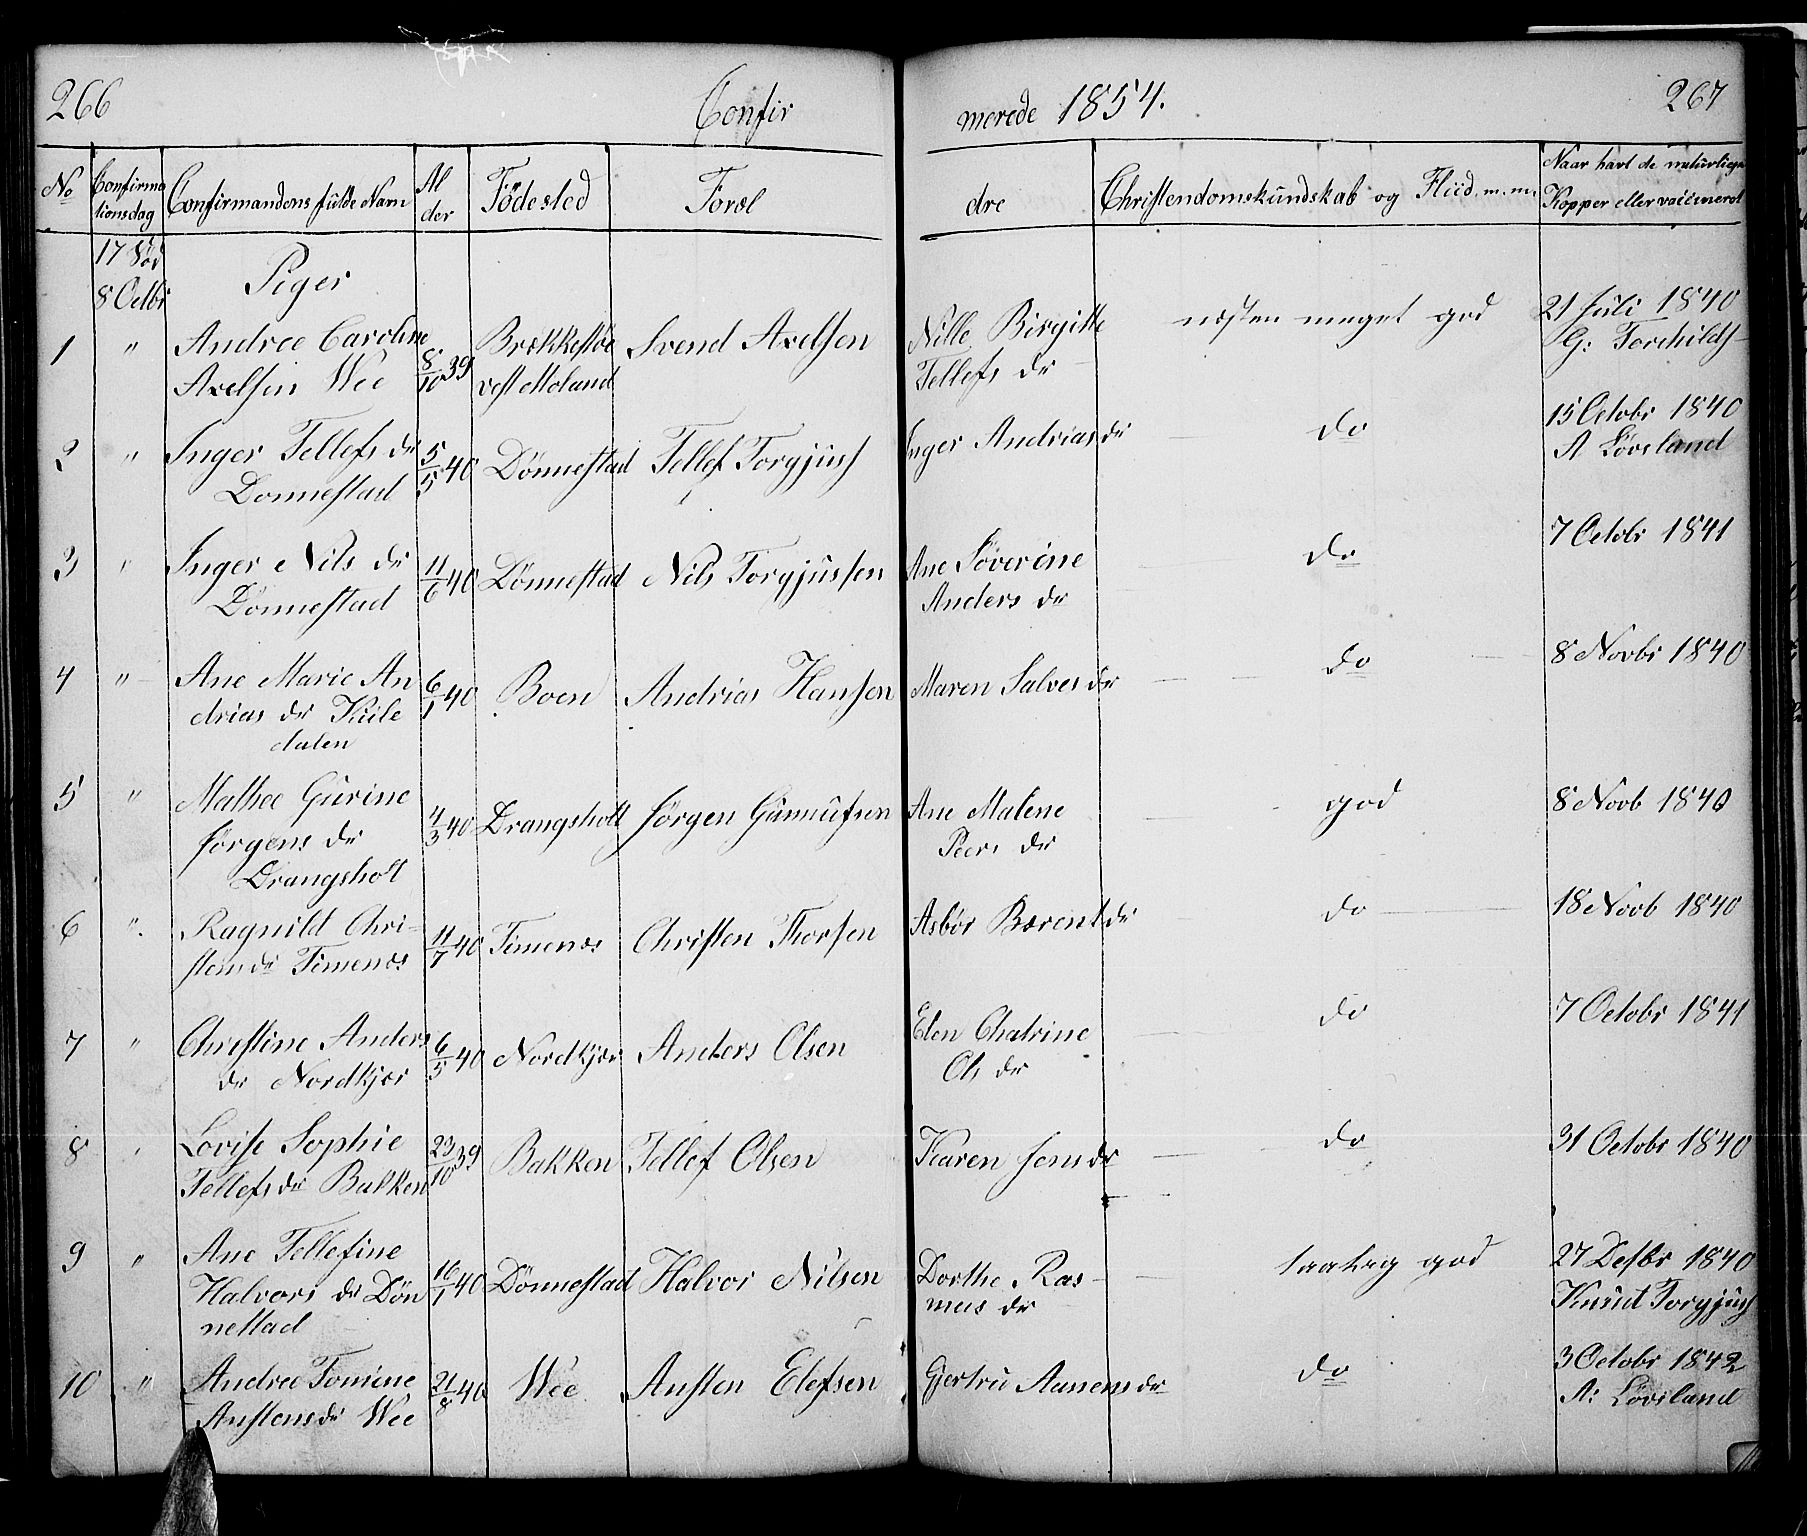 266 Confir merede 1854. 267
No Confirmationsdag Confirmandens fulde Navn Alder Födested Foræl dre Christendomskundskab og Fliid m. m. Naar havt de naturlige Kopper eller vaccineret
17 Sör
8 Octbr Piger
1 " Andrea Caroline Axelsen Wee 8/10 39 Brækkestöe vest Moland Svend Axelsen Nille Birgitte Tellefs dr næsten meget god 21 Juli 1840 G: Torkilds
2 " Inger Tellefs dr Donnestad 5/5 40 Dönnestad Tellef Torgjus Inger Andrias dr do 15 Octobr 1840 A Lövsland
3 " Inger Nils dr Dönnestad 11/6 40 Dönnestad Nils Torgjussen Ane Söverine Anders dr do 7 Octobr 1841
4 " Ane Marie Andrias dr Kiiledalen 6/1 40 Boen Andrias Hansen Maren Salves dr do 8 Novbr 1840
5 " Mathea Gurine Jörgens dr Drangsholt 4/3 40 Drangsholt Jörgen Gunnufsen Ane Malene Peers dr god 8 Novb 1840
6 " Ragnild Christens dr Timenes 11/7 40 Timenes Christen Thorsen Asbör Bærent dr do 18 Novb 1840
7 " Christine Anders dr Nordkjær 6/5 40 Nordkjær Anders Olsen Elen Chatrine Ols dr do 7 Octobr 1841
8 " Lovise Sophie Tellefs dr Bakken 23/10 39 Bakken Tellef Olsen Karen Jens dr do 31 Octobr 1840
9 " Ane Tellefine Halvors dr Dönnestad 16/1 40 Dönnestad Halvor Nilsen Dorthe Rasmus dr taalig god 27 Desbr 1840 Knud Torgjus
10 " Andrea Tomine Anstens dr Wee 21/8 40 Wee Ansten Elefsen Gjertru Aanens dr do 3 Octobr 1842 A: Lövsland